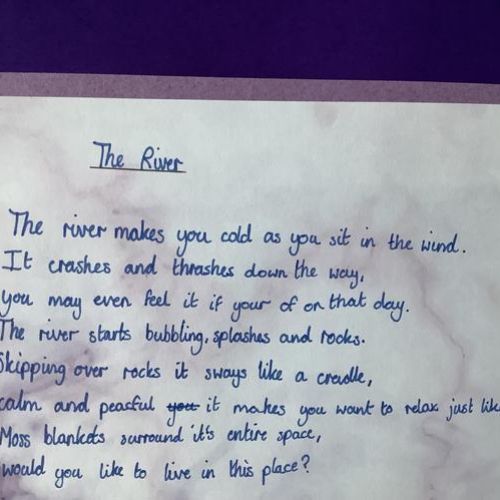 The River
The river makes you cold as you sit in the wind.
It crashes and thrashes down the way,
you may even feel it if your of on that day.
The river starts bubbling, splashes and rocks.
Skipping over rocks it sways like a cradle,
calm and peacful you it makes you want to relax just like
Moss blankets surround it's entire space,
would you like to live in this place?